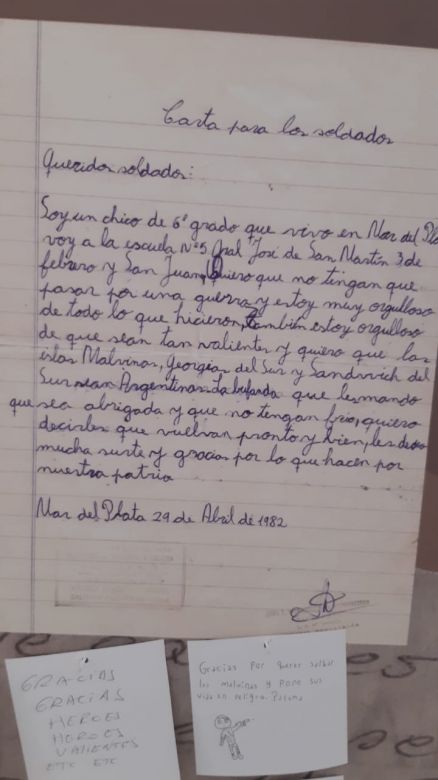 Carta para los soldados
Queridos soldados:
Soy un chico de 6º grado que vivo en Mar del Pla
voy a la escuela Nº5 Gral José de San Martín 3 de
febrero y San Juan, Quiero que no tengan que
pasar por una guerra y estoy muy orgulloso
de todo lo que hicieron, también estoy orgulloso
de que sean tan valientes y quiero que las
islas Malvinas, Georgias del Sur y Sandwich del
Sur sean Argentinas. La bufanda que les mando
que sea abrigada y que no tengan frío, quiero
decirles que vuelvan pronto y bien, les deseo
mucha suerte y gracias por lo que hacen por
nuestra patria
Mar del Plata 29 de Abril de 1982
GRACIAS
GRACIAS
HEROES
HEROES
VALIENTES
ETC ETC
Gracias por querer salbar
las malvinas y pone sus
vida en peligro.